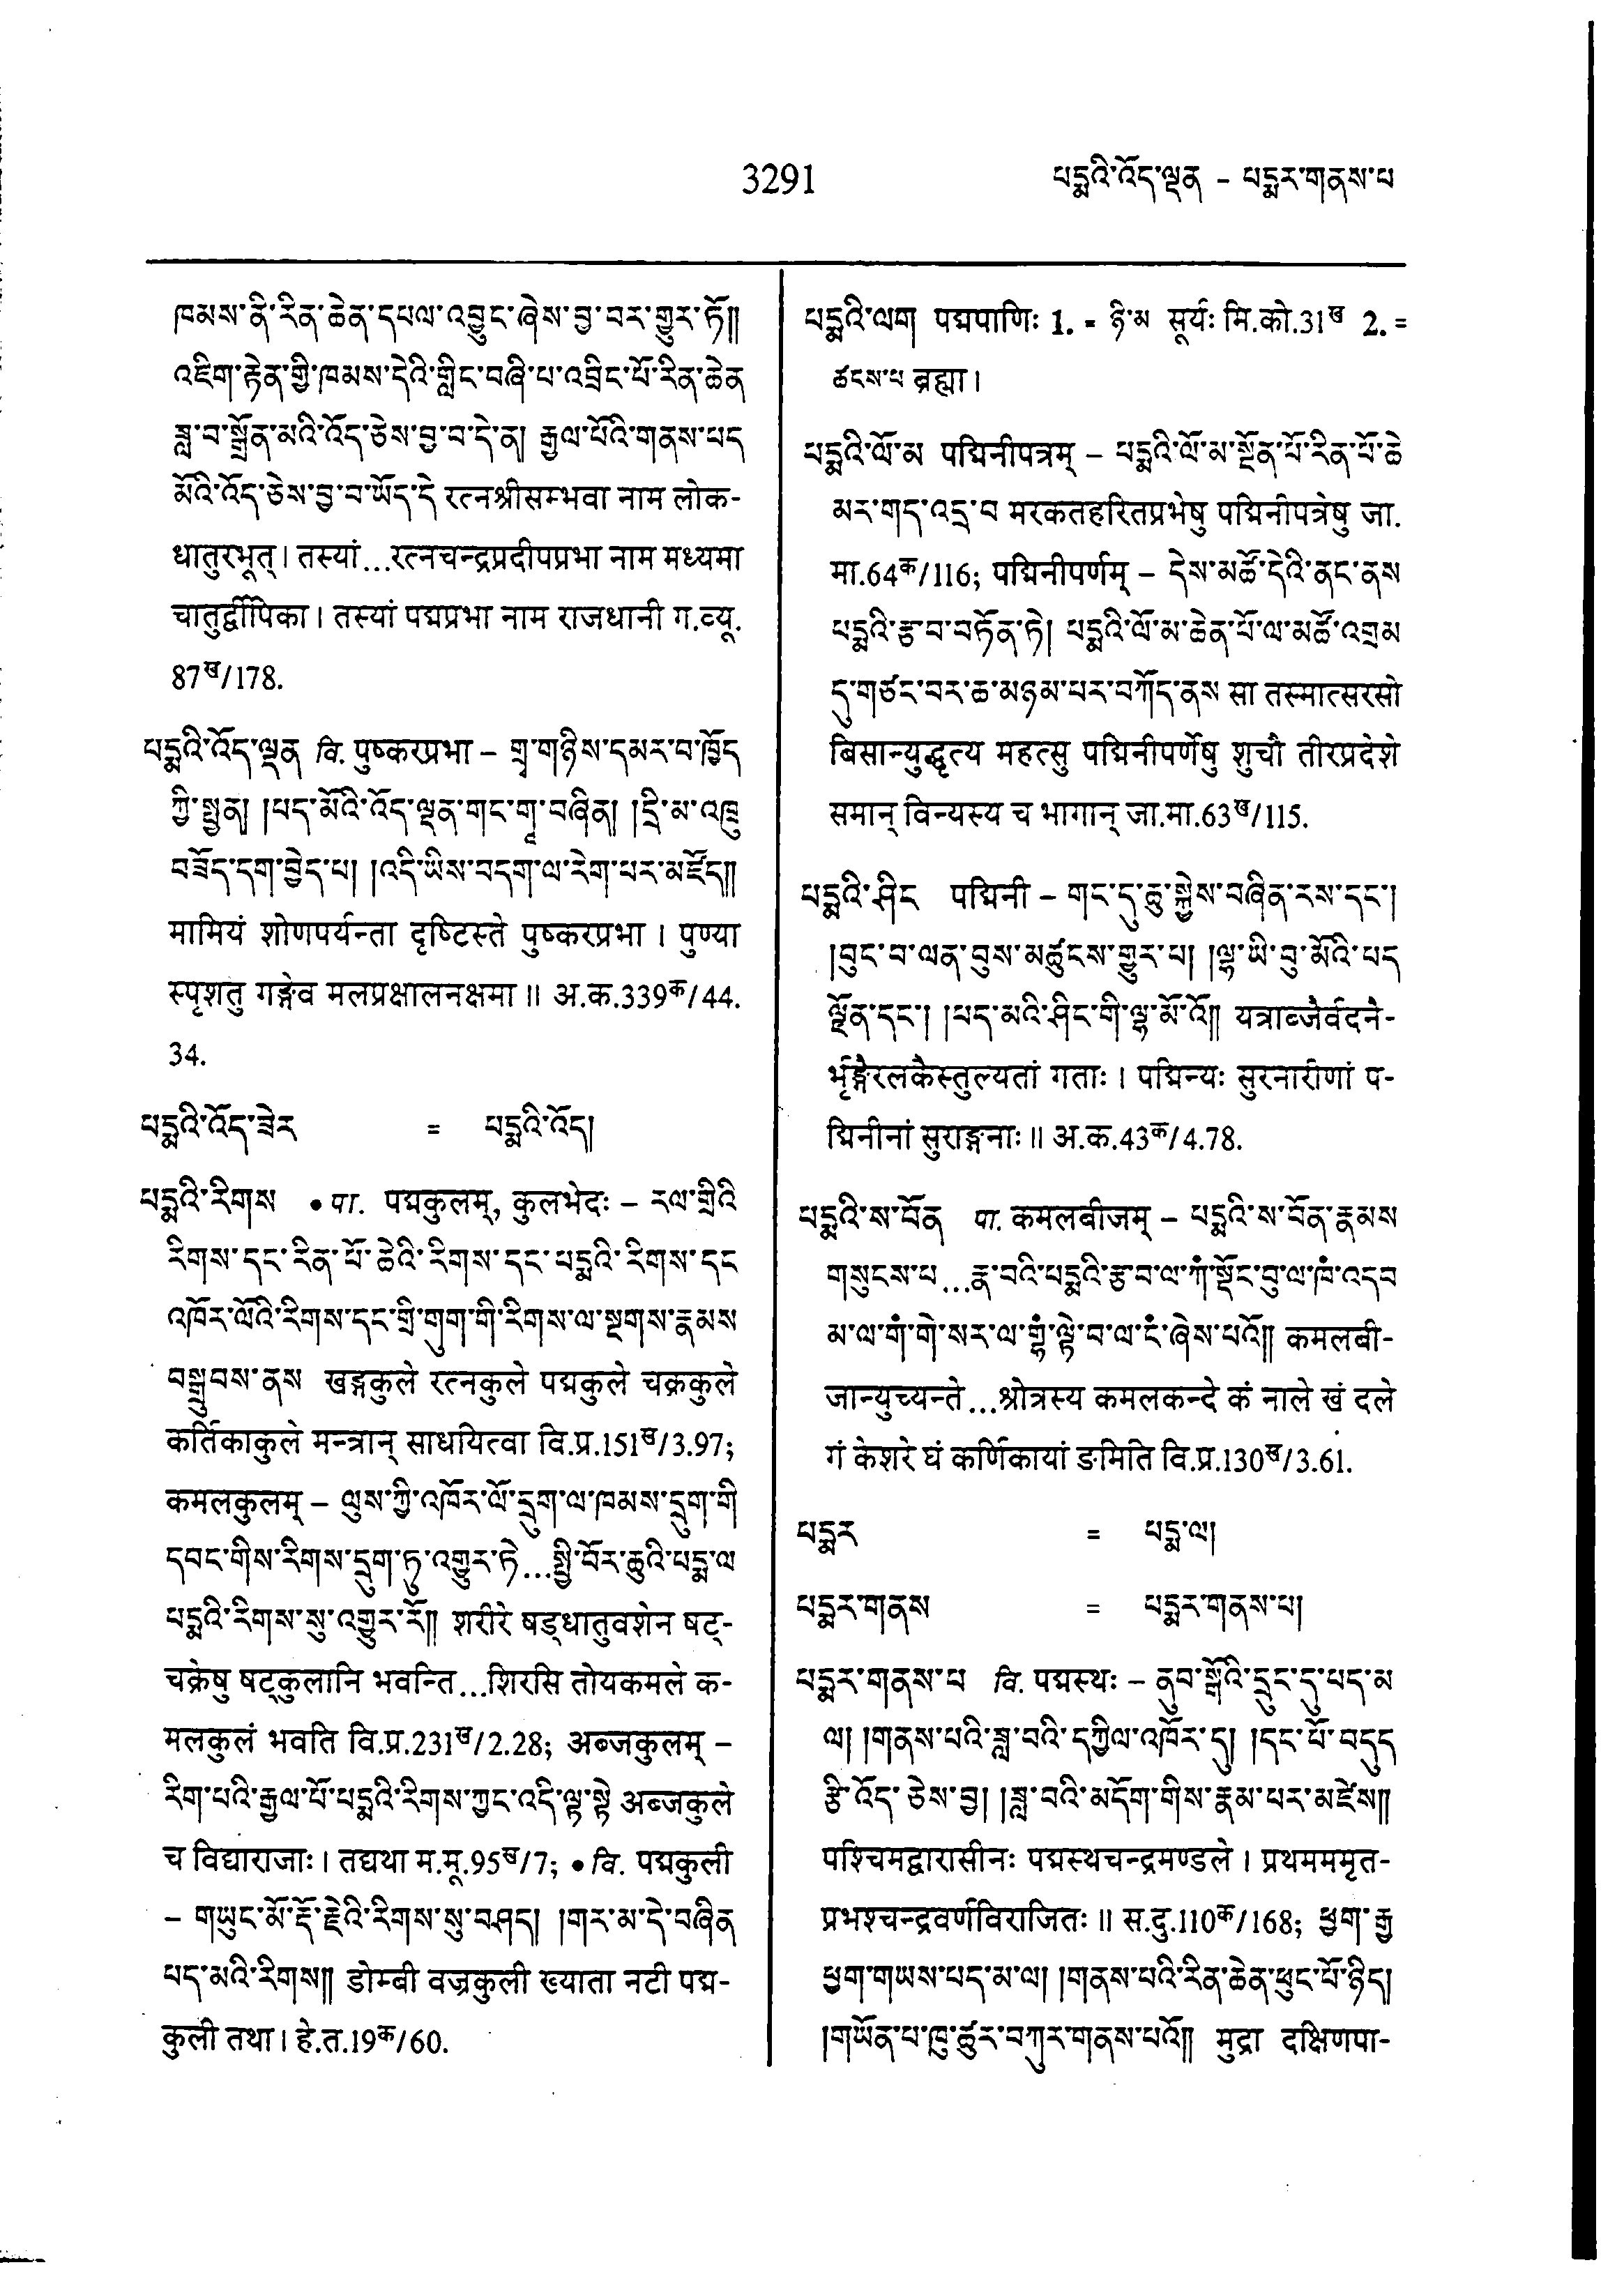 3291
པདྨའི་འོད་ལྡན – པདྨར་གནས་པ
ཁམས་ནི་རིན་ཆེན་དཔལ་འབྱུང་ཞེས་བྱ་བར་གྱུར་ཏོ༎
འཇིག་རྟེན་གྱི་ཁམས་དེའི་གླིང་བཞི་པ་འབྲིང་པོ་རིན་ཆེན
ཟླ་བ་སྒྲོན་མའི་འོད་ཅེས་བྱ་བ་དེ་ན། རྒྱལ་པོའི་གནས་པད
མོའི་འོད་ཅེས་བྱ་བ་ཡོད་དེ रत्नश्रीसम्भवा नाम लोक-
धातुरभूत्। तस्यां...रत्नचन्द्रप्रदीपप्रभा नाम मध्यमा
चातुर्द्वीपिका। तस्यां पद्मप्रभा नाम राजधानी ग.व्यू.
87ख/178.
པདྨའི་འོད་ལྡན वि. पुष्करप्रभा – གྲྭ་གཉིས་དམར་བ་ཁྱོད
ཀྱི་སྤྱན། །པད་མོའི་འོད་ལྡན་གང་གཱ་བཞིན། །དྲི་མ་འཁྲུ
བཟོད་དག་བྱེད་པ། །འདི་ཡིས་བདག་ལ་རེག་པར་མཛོད༎
मामियं शोणपर्यन्ता दृष्टिस्ते पुष्करप्रभा । पुण्या
स्पृशतु गङ्गेव मलप्रक्षालनक्षमा ॥ अ.क.339क/44.
34.
པདྨའི་འོད་ཟེར = པདྨའི་འོད།
པདྨའི་རིགས • पा. पद्मकुलम्, कुलभेदः – རལ་གྲིའི
རིགས་དང་རིན་པོ་ཆེའི་རིགས་དང་པདྨའི་རིགས་དང
འཁོར་ལོའི་རིགས་དང་གྲི་གུག་གི་རིགས་ལ་སྔགས་རྣམས
བསྒྲུབས་ནས खड्गकुले रत्नकुले पद्मकुले चक्रकुले
कर्तिकाकुले मन्त्रान् साधयित्वा वि.प्र.151ख/3.97;
कमलकुलम् – ལུས་ཀྱི་འཁོར་ལོ་དྲུག་ལ་ཁམས་དྲུག་གི
དབང་གིས་རིགས་དྲུག་ཏུ་འགྱུར་ཏེ...སྤྱི་བོར་ཆུའི་པདྨ་ལ
པདྨའི་རིགས་སུ་འགྱུར་རོ༎ शरीरे षड्धातुवशेन षट्-
चक्रेषु षट्कुलानि भवन्ति...शिरसि तोयकमले क-
मलकुलं भवति वि.प्र.231ख/2.28; अब्जकुलम् –
རིག་པའི་རྒྱལ་པོ་པདྨའི་རིགས་ཀྱང་འདི་ལྟ་སྟེ अब्जकुले
च विद्याराजाः। तद्यथा म.मू.95ख/7; • वि. पद्मकुली
– གཡུང་མོ་རྡོ་རྗེའི་རིགས་སུ་བཤད། །གར་མ་དེ་བཞིན
པད་མའི་རིགས༎ डोम्बी वज्रकुली ख्याता नटी पद्म-
कुली तथा। हे.त.19क/60.
པདྨའི་ལག पद्मपाणिः 1. = ཉི་མ सूर्यः मि.को.31ख 2. =
ཚངས་པ ब्रह्मा।
པདྨའི་ལོ་མ पद्मिनीपत्रम् – པདྨའི་ལོ་མ་སྔོན་པོ་རིན་པོ་ཆེ
མར་གད་འདྲ་བ मरकतहरितप्रभेषु पद्मिनीपत्रेषु जा.
मा.64क/116; पद्मिनीपर्णम् – དེས་མཚོ་དེའི་ནང་ནས
པདྨའི་རྩ་བ་བཏོན་ཏེ། པདྨའི་ལོ་མ་ཆེན་པོ་ལ་མཚོ་འགྲམ
དུ་གཙང་བར་ཆ་མཉམ་པར་བཀོད་ནས सा तस्मात्सरसो
बिसान्युद्धृत्य महत्सु पद्मिनीपर्णेषु शुचौ तीरप्रदेशे
समान् विन्यस्य च भागान् जा.मा.63ख/115.
པདྨའི་ཤིང पद्मिनी – གང་དུ་ཆུ་སྐྱེས་བཞིན་རས་དང་།
།བུང་བ་ལན་བུས་མཚུངས་གྱུར་པ། །ལྷ་ཡི་བུ་མོའི་པད
ལྗོན་དང་། །པད་མའི་ཤིང་གི་ལྷ་མོ་འོ༎ यत्राब्जैर्वदनै-
र्भृङ्गैरलकैस्तुल्यतां गताः । पद्मिन्यः सुरनारीणां प-
द्मिनीनां सुराङ्गनाः ॥ अ.क.43क/4.78.
པདྨའི་ས་བོན पा. कमलबीजम् – པདྨའི་ས་བོན་རྣམས
གསུངས་པ...རྣ་བའི་པདྨའི་རྩ་བ་ལ་ཀཾ་སྡོང་བུ་ལ་ཁཾ་འདབ
མ་ལ་གཾ་གེ་སར་ལ་གྷཾ་ལྟེ་བ་ལ་ངཾ་ཞེས་པའོ༎ कमलबी-
जान्युच्यन्ते...श्रोत्रस्य कमलकन्दे कं नाले खं दले
गं केशरे घं कर्णिकायां ङमिति वि.प्र.130ख/3.61.
པདྨར = པདྨ་ལ།
པདྨར་གནས = པདྨར་གནས་པ།
པདྨར་གནས་པ वि. पद्मस्थः – ནུབ་སྒོའི་དྲུང་དུ་པད་མ
ལ། །གནས་པའི་ཟླ་བའི་དཀྱིལ་འཁོར་དུ། །དང་པོ་བདུད
རྩི་འོད་ཅེས་བྱ། །ཟླ་བའི་མདོག་གིས་རྣམ་པར་མཛེས༎
पश्चिमद्वारासीनः पद्मस्थचन्द्रमण्डले । प्रथमममृत-
प्रभश्चन्द्रवर्णविराजितः ॥ स.दु.110क/168; ཕྱག་རྒྱ
ཕྱག་གཡས་པད་མ་ལ། །གནས་པའི་རིན་ཆེན་ཕུང་པོ་ཉིད།
།གཡོན་པ་ཁུ་ཚུར་བཀུར་གནས་པའོ༎ मुद्रा दक्षिणपा-